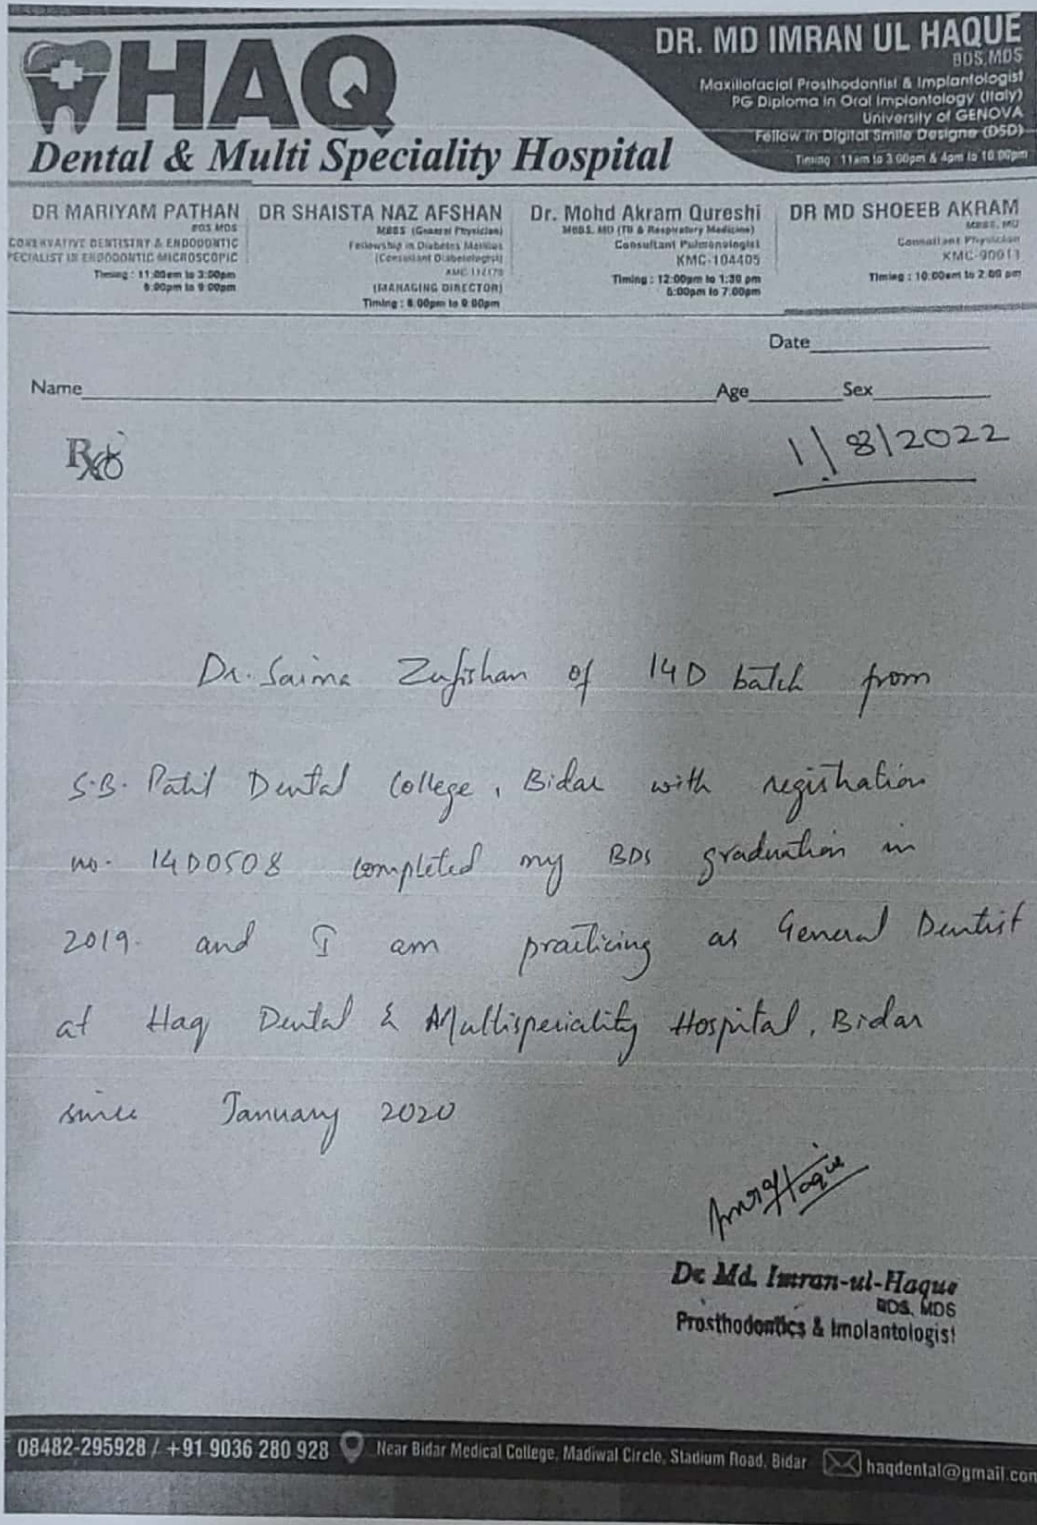 HAQ
Dental & Multi Speciality Hospital
DR. MD IMRAN UL HAQUE
BDS,MDS
Maxillofacial Prosthodontist & Implantologist
PG Diploma in Oral Implantology (Italy)
University of GENOVA
Fellow in Digital Smile Designe (DSD)
Timing : 11am to 3:00pm & 4pm to 10:00pm
DR MARIYAM PATHAN
BDS MDS
CONERVATIVE DENTISTRY & ENDODONTIC
PECIALIST IN ENDODONTIC MICROSCOPIC
Timing : 11:00am to 3:00pm
6:00pm to 9:00pm
DR SHAISTA NAZ AFSHAN
MBBS (General Physician)
Fellowship in Diabetes Mellitus
(Consultant Diabetologist)
(MANAGING DIRECTOR)
Timing : 6.00pm to 9:00pm
Dr. Mohd Akram Qureshi
MBBS, MD (TB & Respiratory Medicine)
Consultant Pulmonologist
KMC-104405
Timing : 12:00pm to 1:30 pm
6:00pm to 7:00pm
DR MD SHOEEB AKRAM
MBBS, MD
Consultant Physician
KMC-90011
Timing : 10:00am to 2:00 pm
Date
Name Age Sex
Rx
1/8/2022
Dr. Saima Zufishan of 14D batch from
S.B. Patil Dental College, Bidar with registration
no. 14D0508 completed my BDS graduation in
2019. and I am practicing as General Dentist
at Haq Dental & Multispeciality Hospital, Bidar
since January 2020
Dr. Md. Imran-ul-Haque
BDS, MDS
Prosthodontics & Implantologist
08482-295928 / +91 9036 280 928 Near Bidar Medical College, Madiwal Circle, Stadium Road, Bidar haqdental@gmail.com